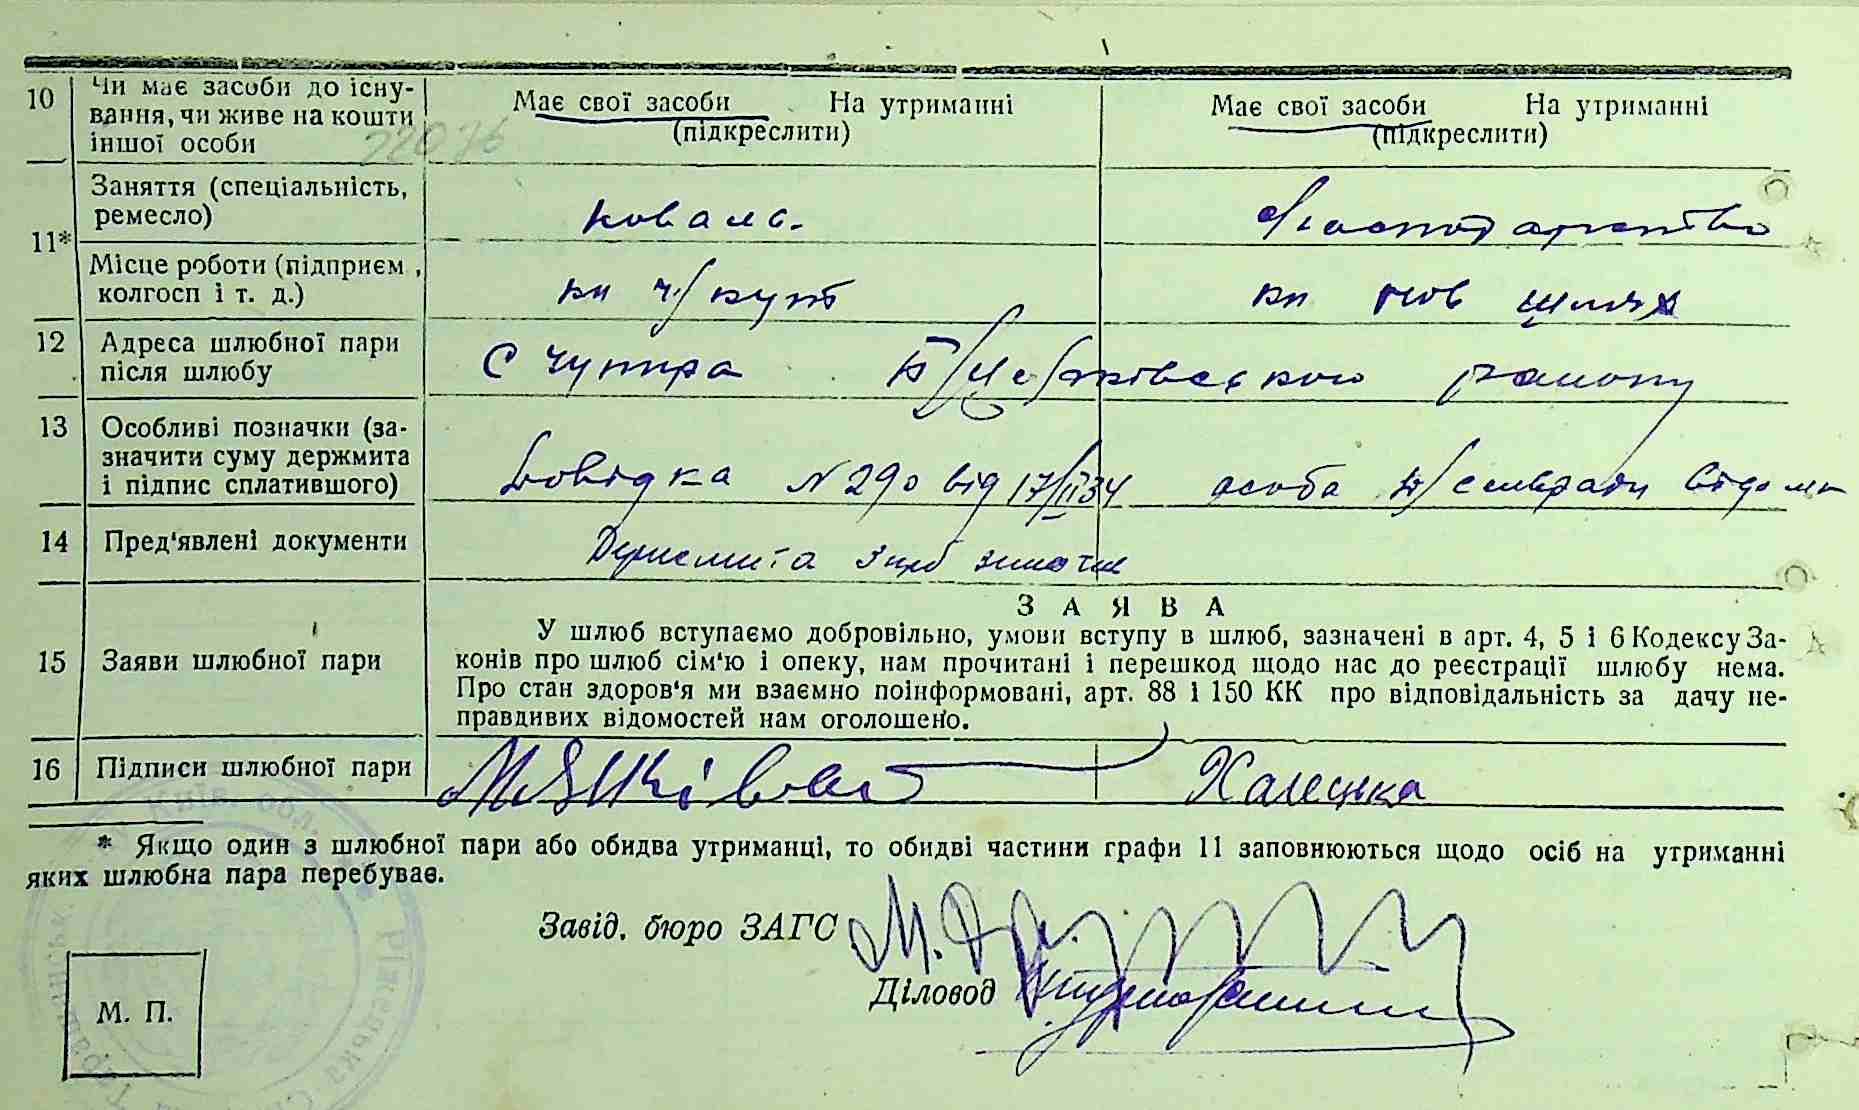 10 Чи має засоби до існу-
вання, чи живе на кошти
іншої особи
22076
Має свої засоби На утриманні
(підкреслити)
Має свої засоби На утриманні
(підкреслити)
11* Заняття (спеціальність,
ремесло)
коваль.
господарство
Місце роботи (підприєм,
колгосп і т. д.)
кп ч/кут
кп нов шлях
12 Адреса шлюбної пари
після шлюбу
с Чупира Б/Церківського району
13 Особливі позначки (за-
значити суму держмита
і підпис сплатившого)
Довідка N 290 від 17/II 34 особа сільради відома
14 Пред'явлені документи
Держмита 3 крб
15 Заяви шлюбної пари
ЗАЯВА
У шлюб вступаємо добровільно, умови вступу в шлюб, зазначені в арт. 4, 5 і 6 Кодексу За-
конів про шлюб сім'ю і опеку, нам прочитані і перешкод щодо нас до реєстрації шлюбу нема.
Про стан здоров'я ми взаємно поінформовані, арт. 88 і 150 КК про відповідальність за дачу не-
правдивих відомостей нам оголошено.
16 Підписи шлюбної пари
Халецька
* Якщо один з шлюбної пари або обидва утриманці, то обидві частини графи 11 заповнюються щодо осіб на утриманні
яких шлюбна пара перебуває.
Завід. бюро ЗАГС
Діловод
М. П.
Київ. обл.